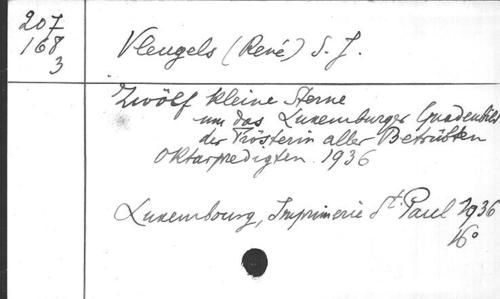 207
168
3
Vleugels (René) S. J.
Zwölf kleine Sterne
um das Luxemburger Gnadenbild
der Trösterin aller Betrübten
Oktavpredigten. 1936
Luxembourg, Imprimerie St. Paul 1936
16°